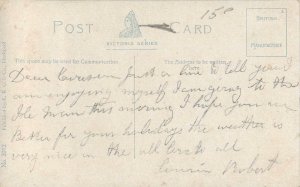 15c
POST CARD
VICTORIA SERIES
BRITISH
MANUFACTURE
This space may be used for Communication.
The Address to be written here
Dear Cousin Just a line to tell you I
am enjoying myself I am going to the
Isle Man this morning I hope you are
Better for your holidays the weather is
very nice in the all Best all
cousin Robert
No.